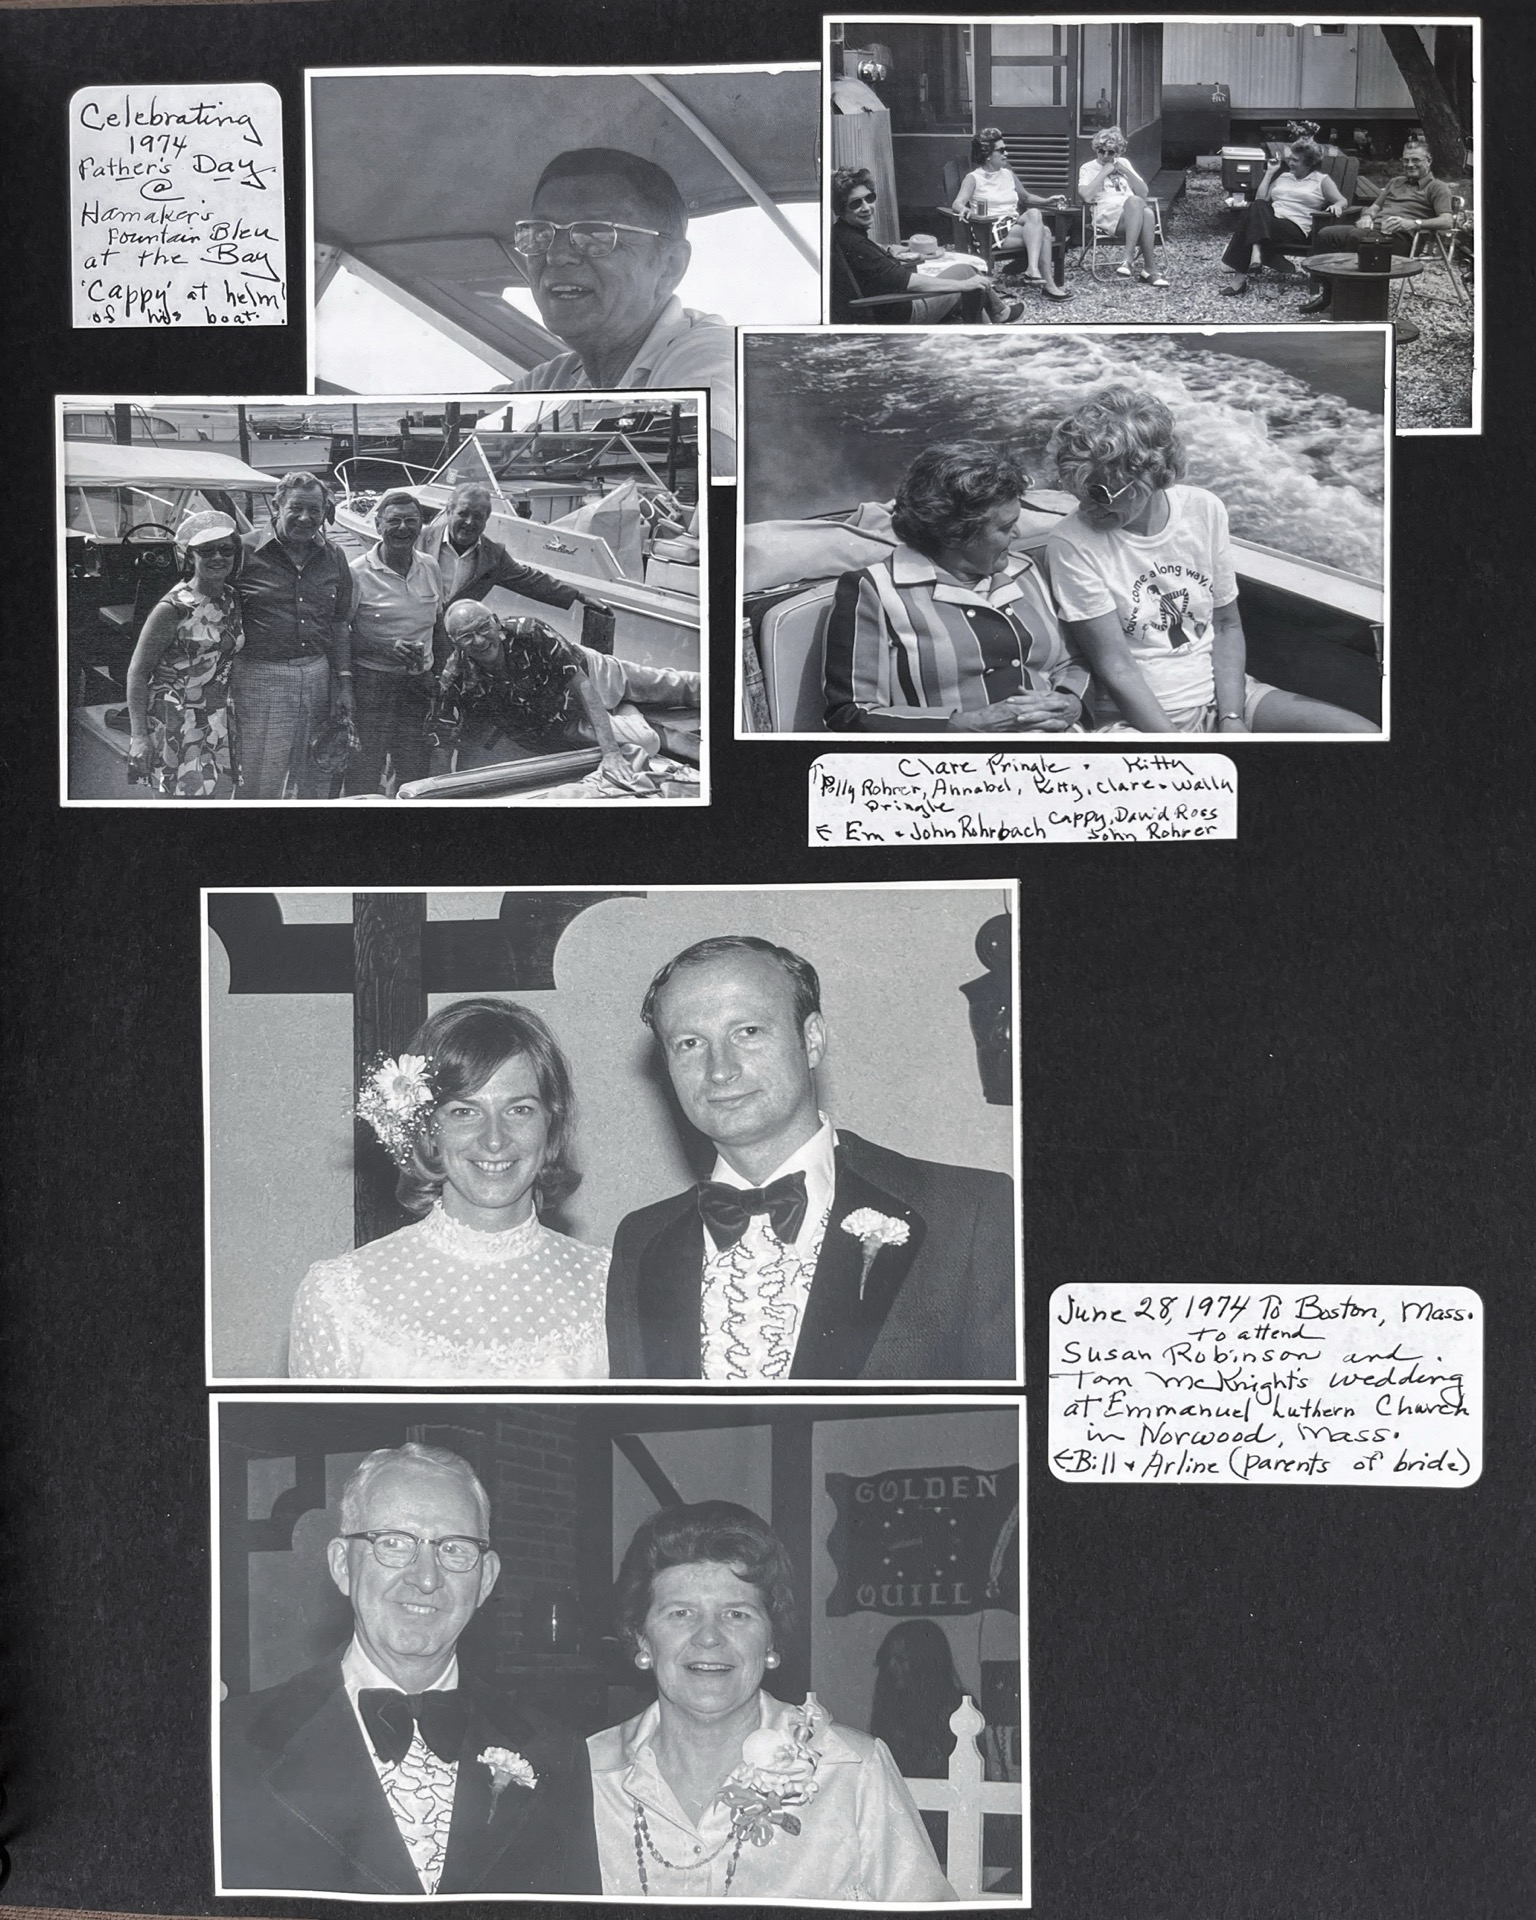 Celebrating
1974
Father's Day
@
Hamaker's
Fountain Bleu
at the Bay
'Cappy' at helm
of his boat.
You've come a long way,
Clare Pringle • Kitty
↑ Polly Rohrer, Annabel, Kitty, Clare + Wally
Pringle
← Em + John Rohrbach Cappy, David Ross
John Rohrer
June 28, 1974 To Boston, Mass.
to attend
Susan Robinson and
Tom McKnight's wedding
at Emmanuel Luthern Church
in Norwood, Mass.
← Bill + Arline (parents of bride)
GOLDEN
QUILL